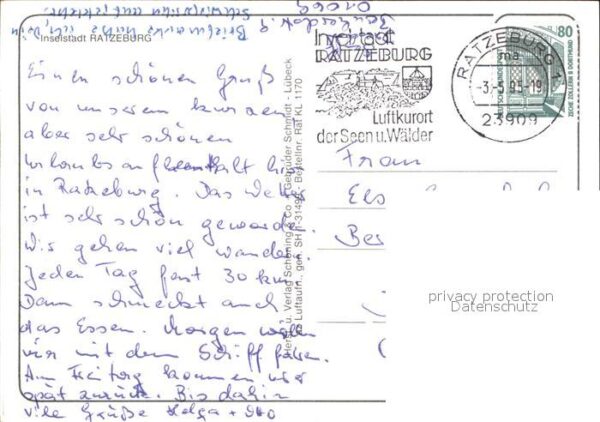 Inselstadt RATZEBURG
Einen schönen Gruß
von unserem kurzen
aber sehr schönen
Urlaubsaufenthalt hier
in Ratzeburg. Das Wetter
ist sehr schön geworden.
Wir gehen viel wandern.
Jeden Tag fast 30 km.
Dann schmeckt auch
das Essen. Morgen wollen
wir mit dem Schiff fahren.
Am Freitag kommen wir
spät zurück. Bis dahin
viele Grüße Helga + Otto
Verlag Schöning & Co + Gebrüder Schmidt - Lübeck
Luftaufn., gen. SH Bestellnr. Rat KL 1170
Inselstadt
RATZEBURG
Luftkurort
der Seen u. Wälder
RATZEBURG 1
ma
-3.-5.93-19
23909
80
DEUTSCHE BUNDESPOST
ZECHE ZOLLERN II DORTMUND
Frau
privacy protection
Datenschutz